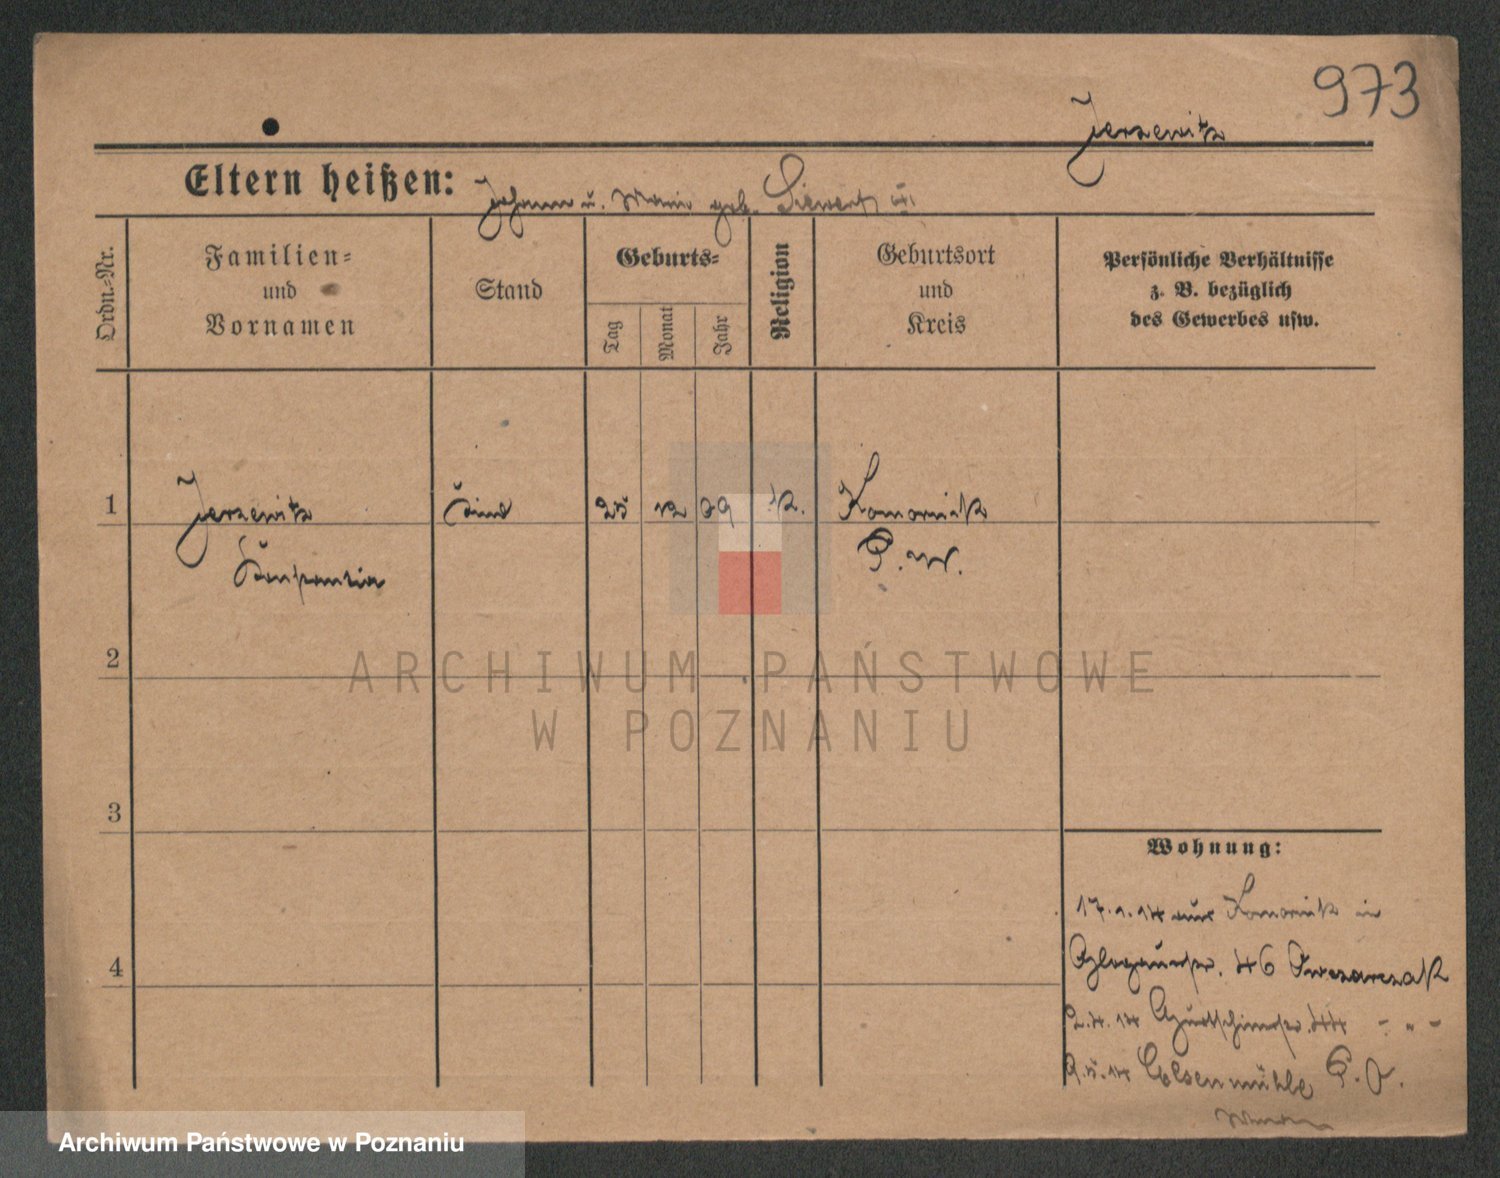 973
Jerzewitz
Eltern heißen: Johann u. Marie geb. Siewert
Ordn.-Nr.
Familien-
und
Vornamen
Stand
Geburts-
Tag
Monat
Jahr
Religion
Geburtsort
und
Kreis
Persönliche Verhältnisse
z. B. bezüglich
des Gewerbes usw.
1
Jerzewitz
Kind
25
12
09
K.
Komornik
P. W.
2
3
4
Wohnung:
17.1.14 aus Komornik in
Glogauerstr. 46 Owczarczak
2.4.14 44 - " -
9.5.14 Eosenmühle P. O.
ARCHIWUM PAŃSTWOWE
W POZNANIU
Archiwum Państwowe w Poznaniu